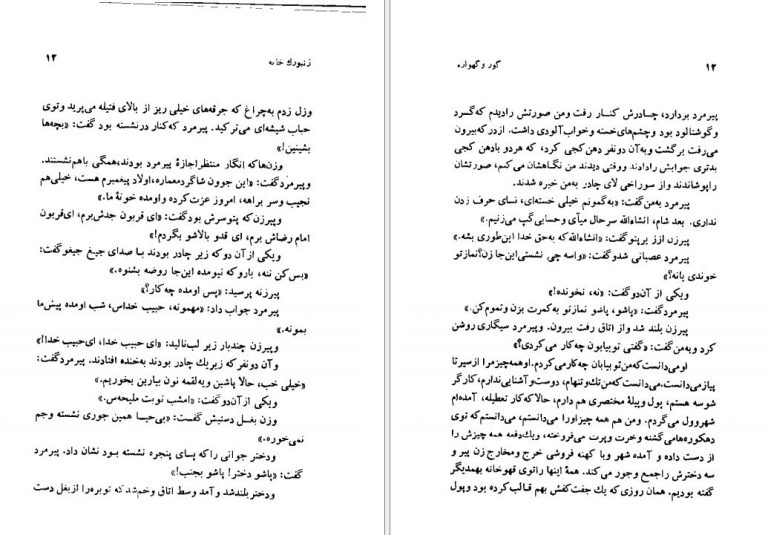 ۱۲
گور و گهواره
پیرمرد بردارد، چادرش کنار رفت ومن صورتش رادیدم که گرد
و گوشتالود بود و چشم‌های خسته و خواب‌آلودی داشت. ازدر که بیرون
می‌رفت برگشت و به آن دونفر دهن کجی کرد، که هردو بادهن کجی
بدتری جوابش رادادند و وقتی دیدند من نگاهشان می‌کنم، صورتشان
راپوشاندند و از سوراخی لای چادر به‌من خیره شدند.
پیرمرد به‌من گفت: «به‌گمونم خیلی خسته‌ای، نسای حرف زدن
نداری. بعد شام، انشاءالله سرحال میآی و حسابی گپ می‌زنیم.»
پیرزن اززیر پتو گفت: «انشاءالله که به حق خدا این‌طوری بشه.»
پیرمرد عصبانی شد و گفت: «واسه چی نشستی این‌جا زن؟ نمازتو
خوندی یانه؟»
و یکی از آن دو گفت: «نه، نخونده!»
پیرمرد گفت: «پاشو، پاشو نمازتو به‌کمرت بزن و تموم کن.»
پیرزن بلند شد و از اتاق رفت بیرون. و پیرمرد سیگاری روشن
کرد و به‌من گفت: «گفتی تو بیابون چه‌کار می‌کردی؟»
او می‌دانست که من تو بیابان چه‌کار می‌کردم. او همه‌چیز مرا از سیر تا
پیاز می‌دانست. می‌دانست که من تك و تنهام، دوست و آشنایی ندارم، کارگر
شوسه هستم، پول و پیلهٔ مختصری هم دارم، حالا که کار تعطیله، آمده‌ام
شهر و ول می‌گردم. ومن هم همه چیز او را می‌دانستم، می‌دانستم که توی
دهکوره‌ها می‌گشته و خرت و پرت می‌فروخته، و یك‌دفعه همه چیزش را
از دست داده و آمده شهر و با کهنه فروشی خرج و مخارج زن پیر و
سه دخترش را جمع و جور می‌کند. همهٔ اینها را توی قهوخانه بهمدیگر
گفته بودیم. همان روزی که یك جفت کفش بهم قالب کرده بود و پول
۱۳
زنبورك خانه
وزل زدم به‌چراغ که جرقه‌های خیلی ریز از بالای فتیله می‌پرید و توی
حباب شیشه‌ای می‌ترکید. پیرمرد که کنار در نشسته بود گفت: «بچه‌ها
بشینین!»
وزن‌ها که انگار منتظر اجازهٔ پیرمرد بودند، همگی باهم نشستند.
و پیرمرد گفت: «این جوون شاگرد معماره، اولاد پیغمبرم هست، خیلی هم
نجیب وسر براهه، امروز عزت کرده و اومده خونهٔ ما.»
و پیرزن که پتو سرش بود گفت: «ای قربون جدش برم، ای قربون
امام رضاش برم، ای قد و بالاشو بگردم!»
و یکی از آن دو که زیر چادر بودند با صدای جیغ جیغو گفت:
«بس کن ننه، یارو که نیومده این‌جا روضه بشنوه.»
پیرزنه پرسید: «پس اومده چه‌کار؟»
پیرمرد جواب داد: «مهمونه، حبیب خداس، شب اومده پیش ما
بمونه.»
و پیرزن چندبار زیر لب نالید: «ای حبیب خدا، ای حبیب خدا!»
و آن دونفر که زیر یك چادر بودند به‌خنده افتادند. پیرمرد گفت:
«خیلی خب، حالا پاشین و یه‌لقمه نون بیارین بخوریم.»
و یکی از آن دو گفت: «امشب نوبت ملیحه‌س.»
وزن بغل دستیش گفت: «بی‌حیا همین جوری نشسته و جم
نمی‌خوره.»
و دختر جوانی را که پسای پنجره نشسته بود نشان داد. پیرمرد
گفت: «پاشو دختر! پاشو بجنب!»
و دختر بلند شد و آمد وسط اتاق و خم شد که توبره را از بغل دست